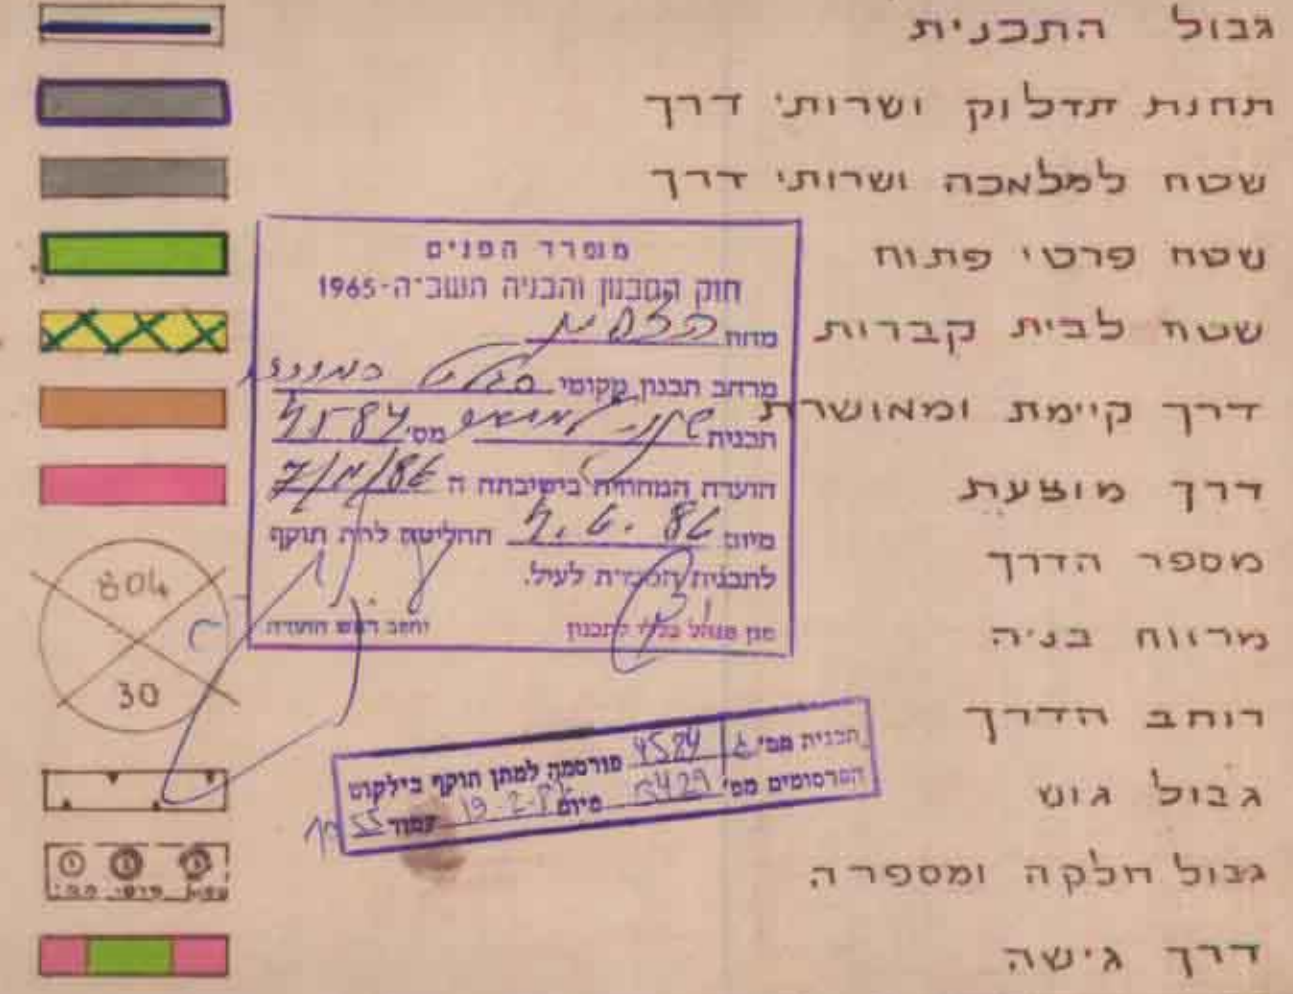 גבול התכנית
תחנת תדלוק ושרותי דרך
שטח למלאכה ושרותי דרך
שטח פרטי פתוח
שטח לבית קברות
דרך קיימת ומאושרת
דרך מוצעת
מספר הדרך
מרווח בניה
רוחב הדרך
גבול גוש
גבול חלקה ומספרה
דרך גישה
משרד הפנים
חוק התכנון והבניה תשכ"ה-1965
מחוז הצפון
מרחב תכנון מקומי
תכנית מס' 4584
הועדה המחוזית בישיבתה ה 7/מ/86
מיום 4.6.86 החליטה לתת תוקף
לתכנית הנזכרת לעיל.
סגן מנהל כללי לתכנון יושב ראש הועדה
תכנית מס' ג/4584 פורסמה למתן תוקף בילקוט
הפרסומים מס' 3429 מיום 19-2-87 עמוד
804
30